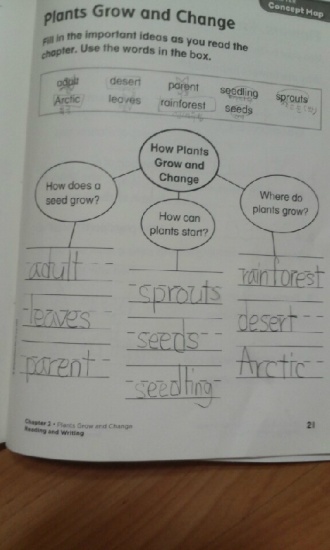 Concept Map
Plants Grow and Change
Fill in the important ideas as you read the
chapter. Use the words in the box.
adult desert parent seedling sprouts
Arctic leaves rainforest seeds
How Plants
Grow and
Change
How does a
seed grow?
How can
plants start?
Where do
plants grow?
adult
leaves
parent
sprouts
seeds
seedling
rainforest
desert
Arctic
Chapter 2 • Plants Grow and Change
Reading and Writing
21